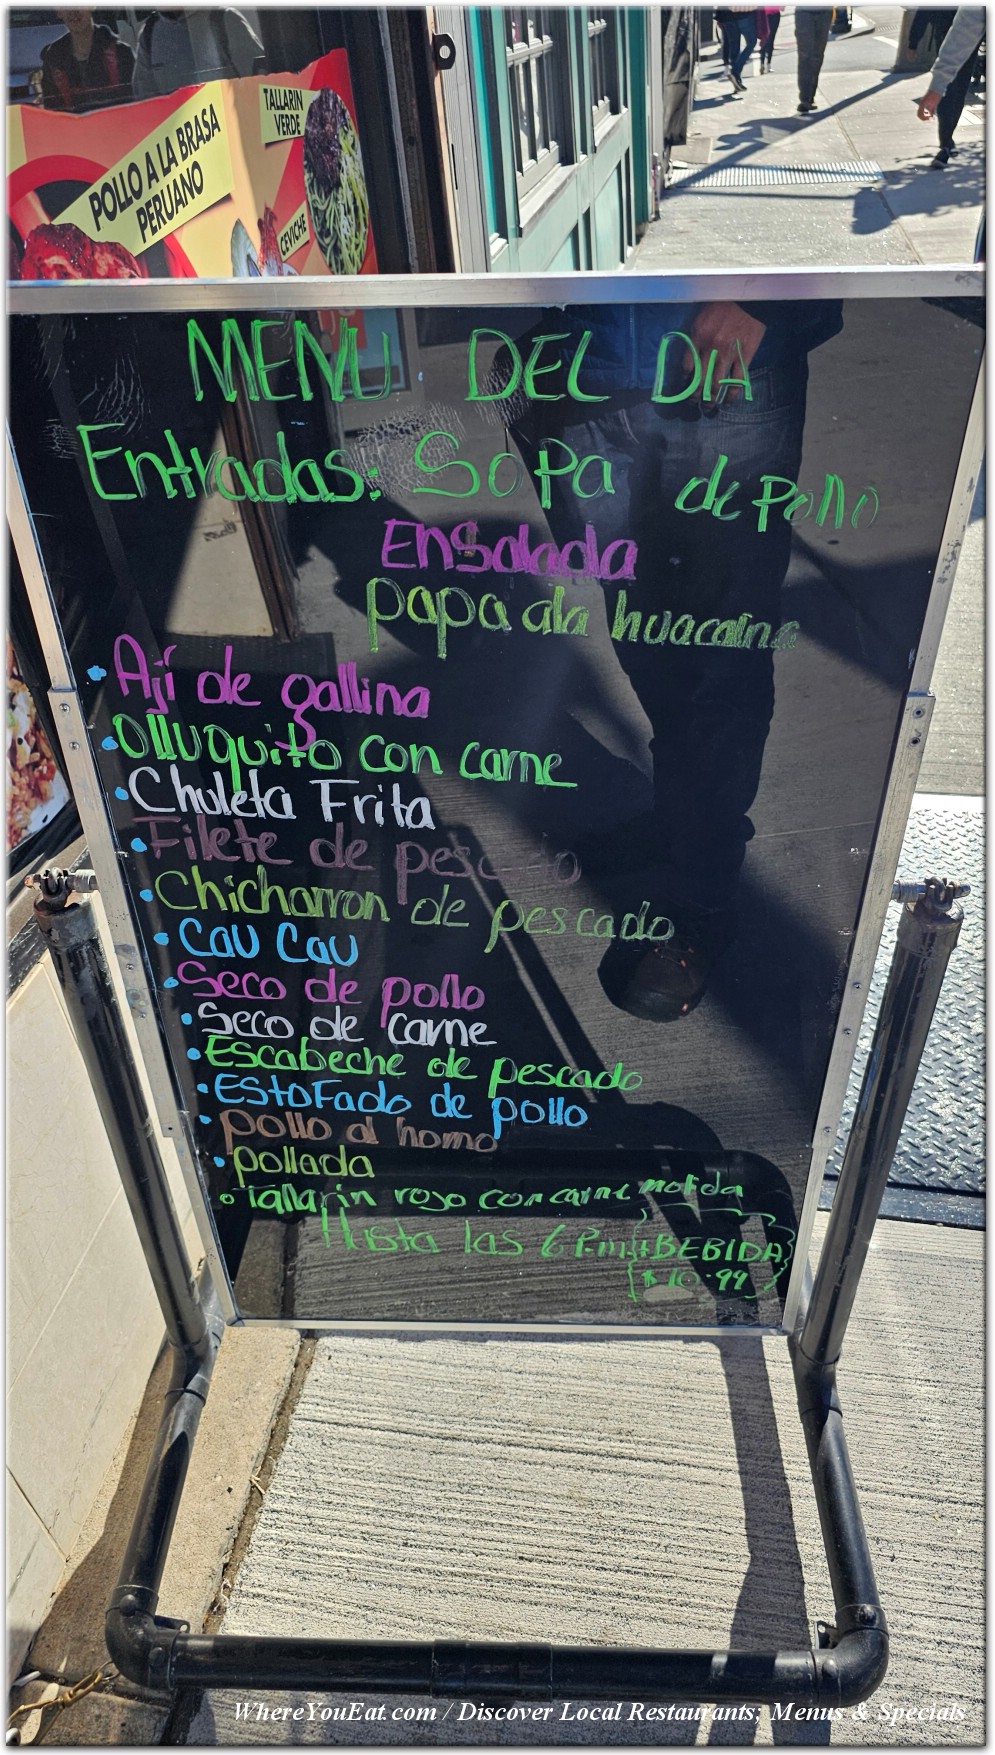 POLLO A LA BRASA
PERUANO
TALLARIN
VERDE
CEVICHE
MENU DEL DIA
Entradas: Sopa de pollo
Ensalada
papa ala huacaina
• Ají de gallina
• Olluquito con carne
• Chuleta Frita
• Filete de pescado
• Chicharron de pescado
• Cau Cau
• Seco de pollo
• Seco de carne
• Escabeche de pescado
• EstoFado de pollo
• pollo al horno
• pollada
• Tallarin rojo con carne molida
Hasta las 6 P.m + BEBIDA
$ 10.99
WhereYouEat.com / Discover Local Restaurants; Menus & Specials